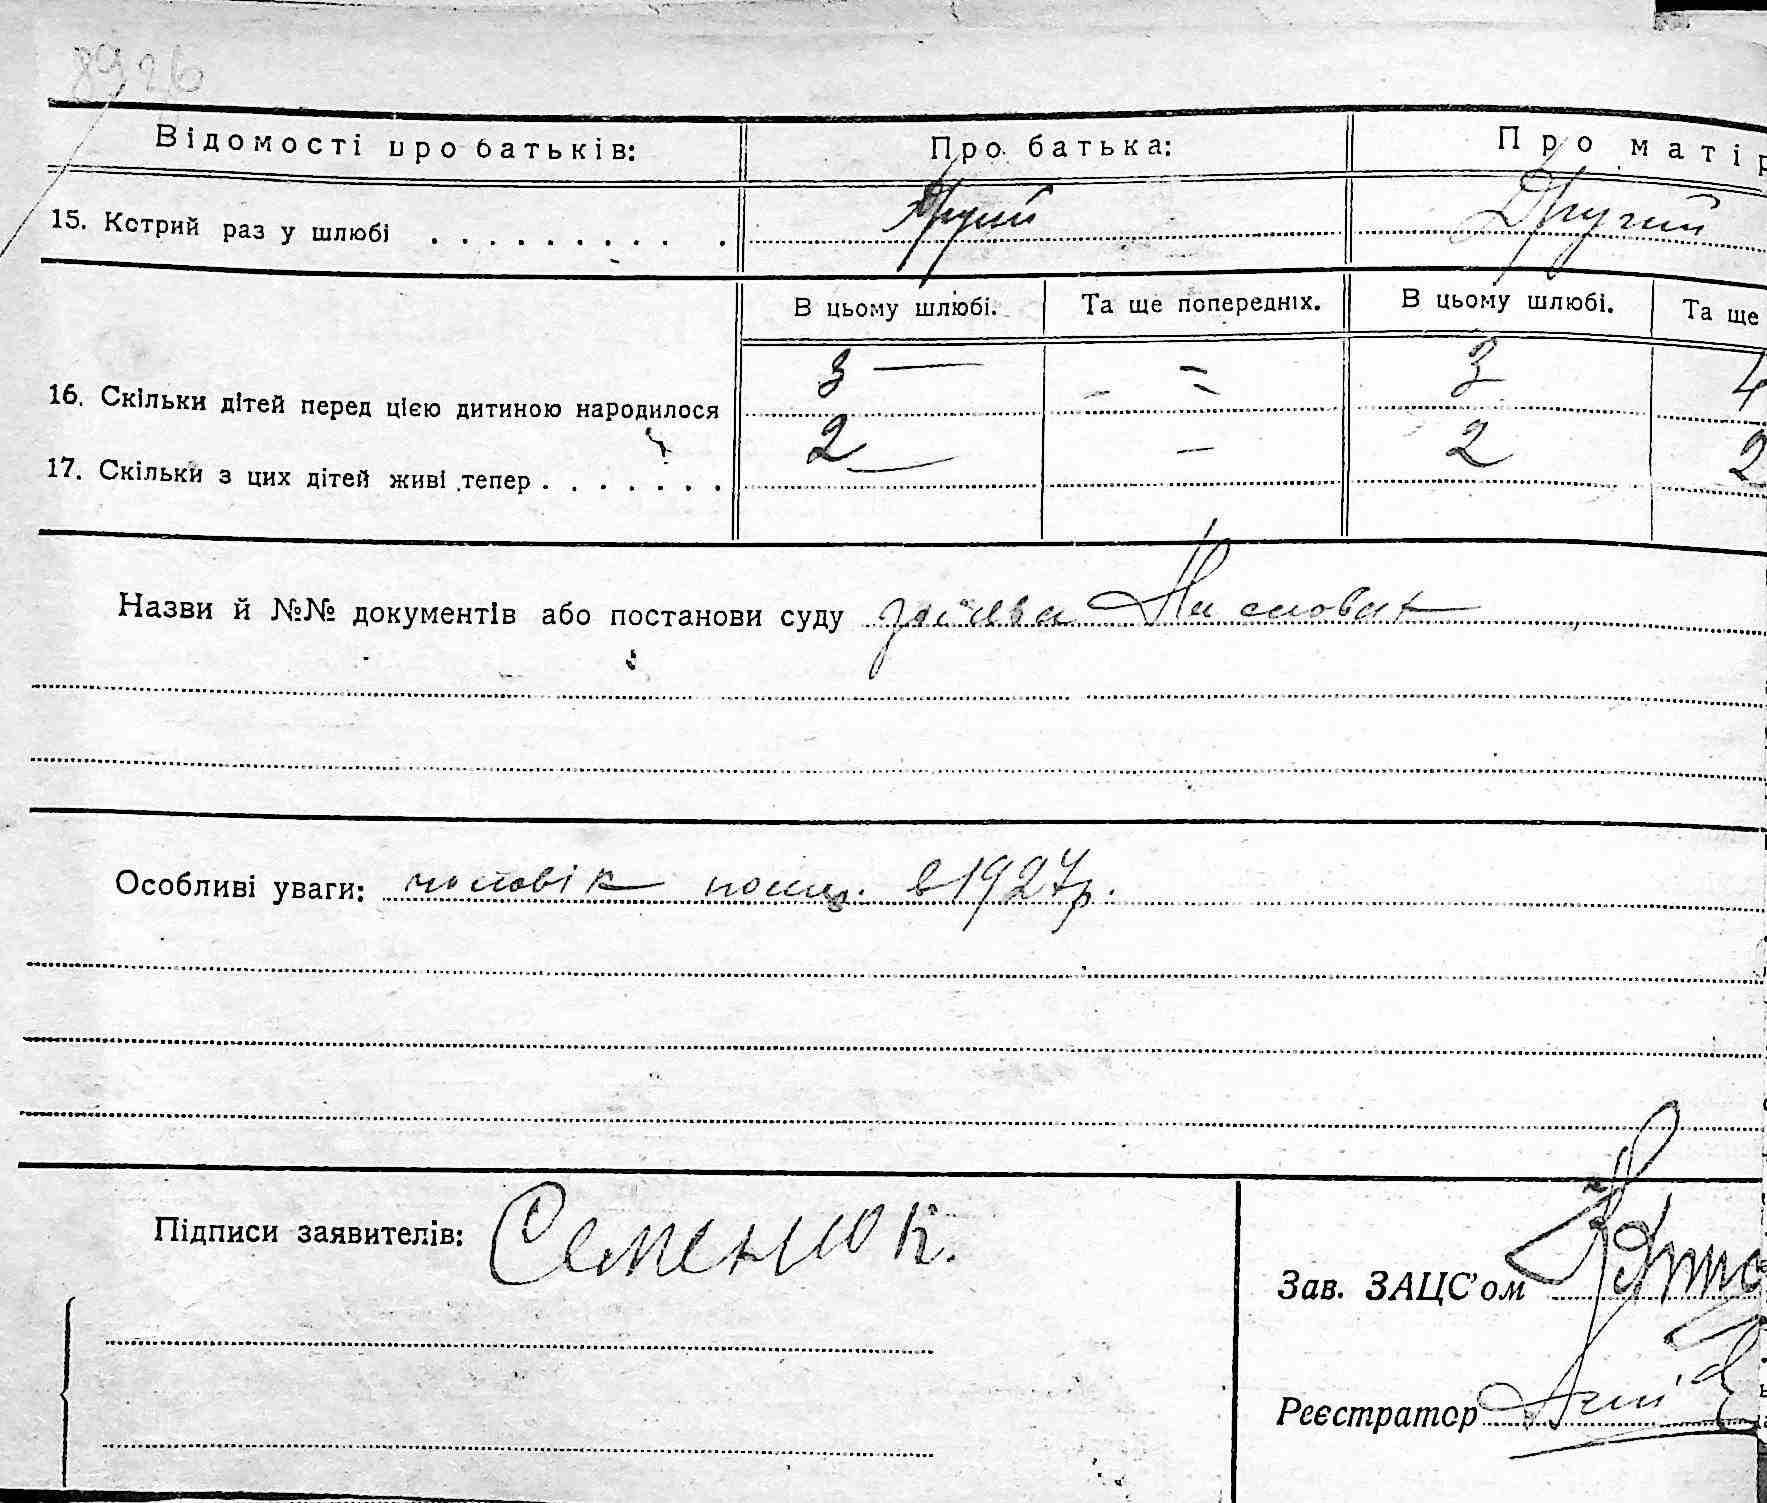 8926
Відомості про батьків: Про батька: Про матір
15. Котрий раз у шлюбі . . . . . . . . . . Другий
В цьому шлюбі. Та ще попередніх. В цьому шлюбі. Та ще
16. Скільки дітей перед цією дитиною народилося 3 — - = 3 4
17. Скільки з цих дітей живі тепер . . . . . . . 2 — - 2 2
Назви й №№ документів або постанови суду
Особливі уваги: чоловік в 1927 р.
Підписи заявителів: Семенюк.
Зав. ЗАЦС'ом
Реєстратор